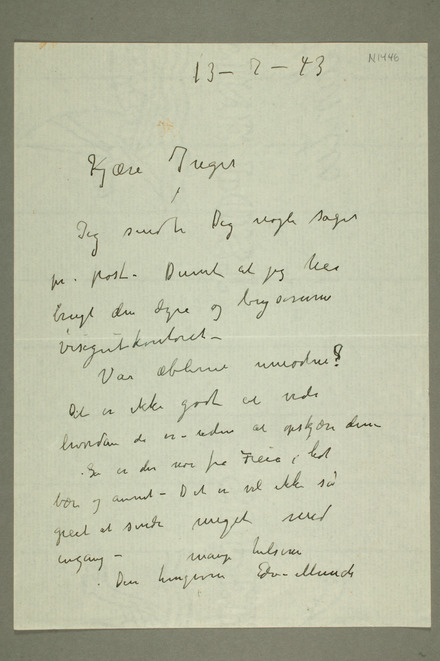 N1446
13 - 2 - 43
Kjære Inger
Jeg sendte Dig nogle sager
pr. post - Dumt at jeg har
brugt den dyre og
visergutkontoret -
Var æblerne umodne?
Det er ikke godt at vide
hvordan de er - uden at opskjære dem
Så er der noe fra Freia, kål
bær og annet - Det er vel ikke så
greit at sende meget med
engang - mange hilsner
Din hengivne Edv Munch